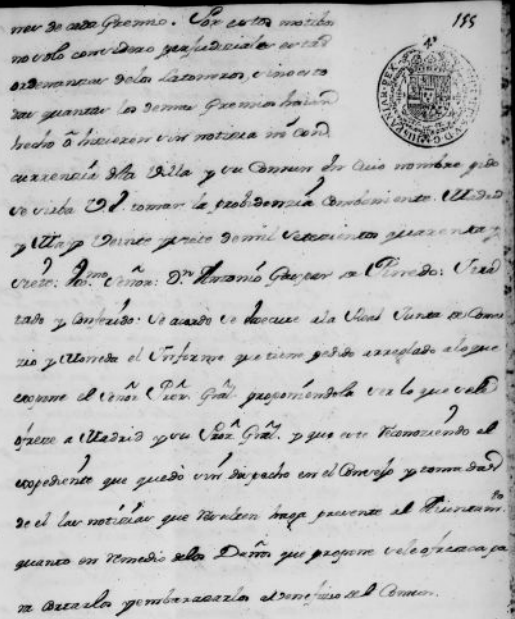 155
nes de cada Gremio. Por estos motibos
no solo considero perjudiciales estas
ordenanzas de los Latoneros, sino es to
das quantas los demas Gremios haian
hecho ô hicieren sin noticia ni con
currencia de esta Villa y su Comun en cuio nombre pido
se sirba V.S. tomar la probidenzia combeniente. Madrid
y Maio Veinte y siete de mil setecientos quarenta y
siete: Señor: Dn Antonio Gaspar de Pinedo: Tra
tado y Conferido: se acordo se execute a la Real Junta de Comer
zio y Moneda el Ynforme que tiene pedido arreglado alo que
expone el Señor Pror. Gral. proponiendola ver lo que se le
ofreze a Madrid y su Pror. Gral. y que este reconoziendo el
expediente que quedó sin despacho en el Consejo y tomadas
de el las noticias que resulten haga presente al Aiuntamto
quanto en remedio delos Daños que propone se le ofrezca pa
ra cortarlos y embarazarlos al veneficio del Comun.